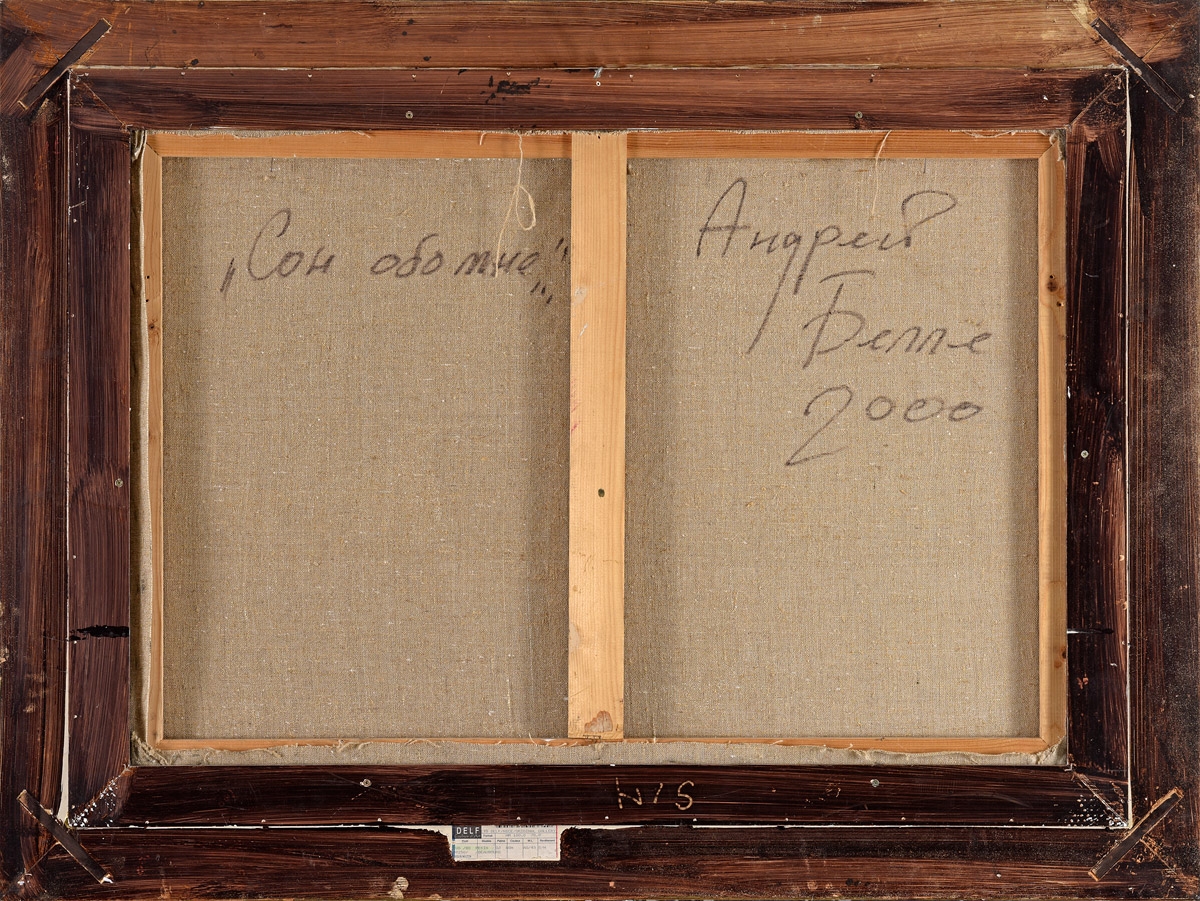 „Сон обо мне"
Андрей
Белле
2000
DELF